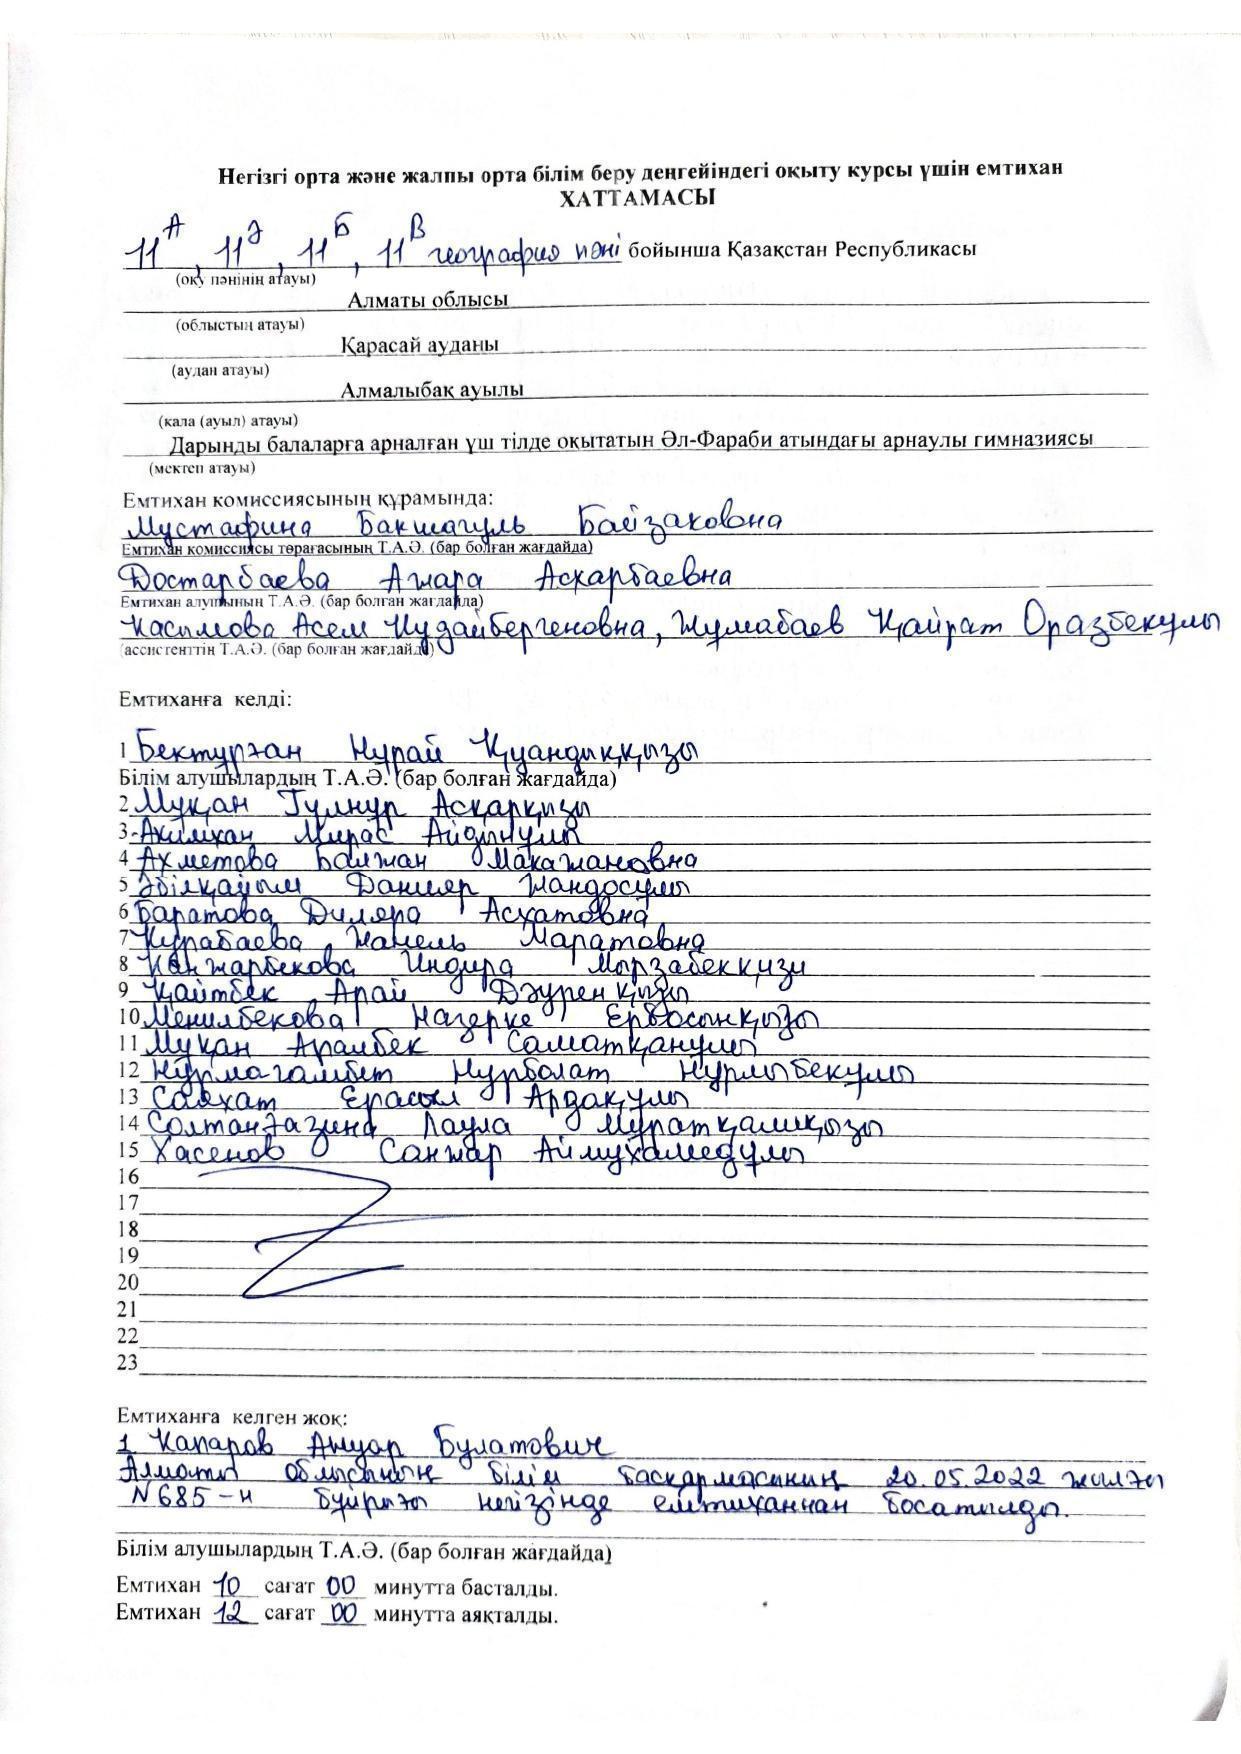 Негізгі орта және жалпы орта білім беру деңгейіндегі оқыту курсы үшін емтихан
ХАТТАМАСЫ
11А, 11Ә, 11Б, 11В география пәні бойынша Қазақстан Республикасы
(оқу пәнінің атауы)
Алматы облысы
(облыстың атауы)
Қарасай ауданы
(аудан атауы)
Алмалыбақ ауылы
(қала (ауыл) атауы)
Дарынды балаларға арналған үш тілде оқытатын Әл-Фараби атындағы арнаулы гимназиясы
(мектеп атауы)
Емтихан комиссиясының құрамында:
Мустафина Бакшагуль Байзаковна
Емтихан комиссиясы төрағасының Т.А.Ә. (бар болған жағдайда)
Достарбаева Ажара Аскарбаевна
Емтихан алушының Т.А.Ә. (бар болған жағдайда)
Касымова Асем Кудайбергеновна, Жумабаев Қайрат Оразбекулы
(ассистенттің Т.А.Ә. (бар болған жағдайда)
Емтиханға келді:
1 Бектурған Нурай Қуандыққызы
Білім алушылардың Т.А.Ә. (бар болған жағдайда)
2 Муқан Гулнур Асқарқызы
3 Акимхан Мирас Айдынулы
4 Ахметова Балжан Макажановна
5 Әбілқайым Данияр Жандосулы
6 Баратова Диляра Асхатовна
7 Курабаева Жанель Маратовна
8 Канжарбекова Индира Мырзабекқизи
9 Қайтбек Арай Дәуренқызы
10 Менилбекова Назерке Ерботынқызы
11 Муқан Аралбек Саматқанулы
12 Нурмагамбет Нурболат Нурлыбекулы
13 Саяхат Ерасыл Ардақулы
14 Солтанғазина Лаула Муратқалиқызы
15 Хасенов Санжар Аймухамедулы
16
17
18
19
20
21
22
23
Емтиханға келген жоқ:
1 Капаров Ануар Булатович
Алматы облысының білім басқармасының 20.05.2022 жылғы
N685-н буйрығы негізінде емтиханнан босатылды.
Білім алушылардың Т.А.Ә. (бар болған жағдайда)
Емтихан 10 сағат 00 минутта басталды.
Емтихан 12 сағат 00 минутта аяқталды.